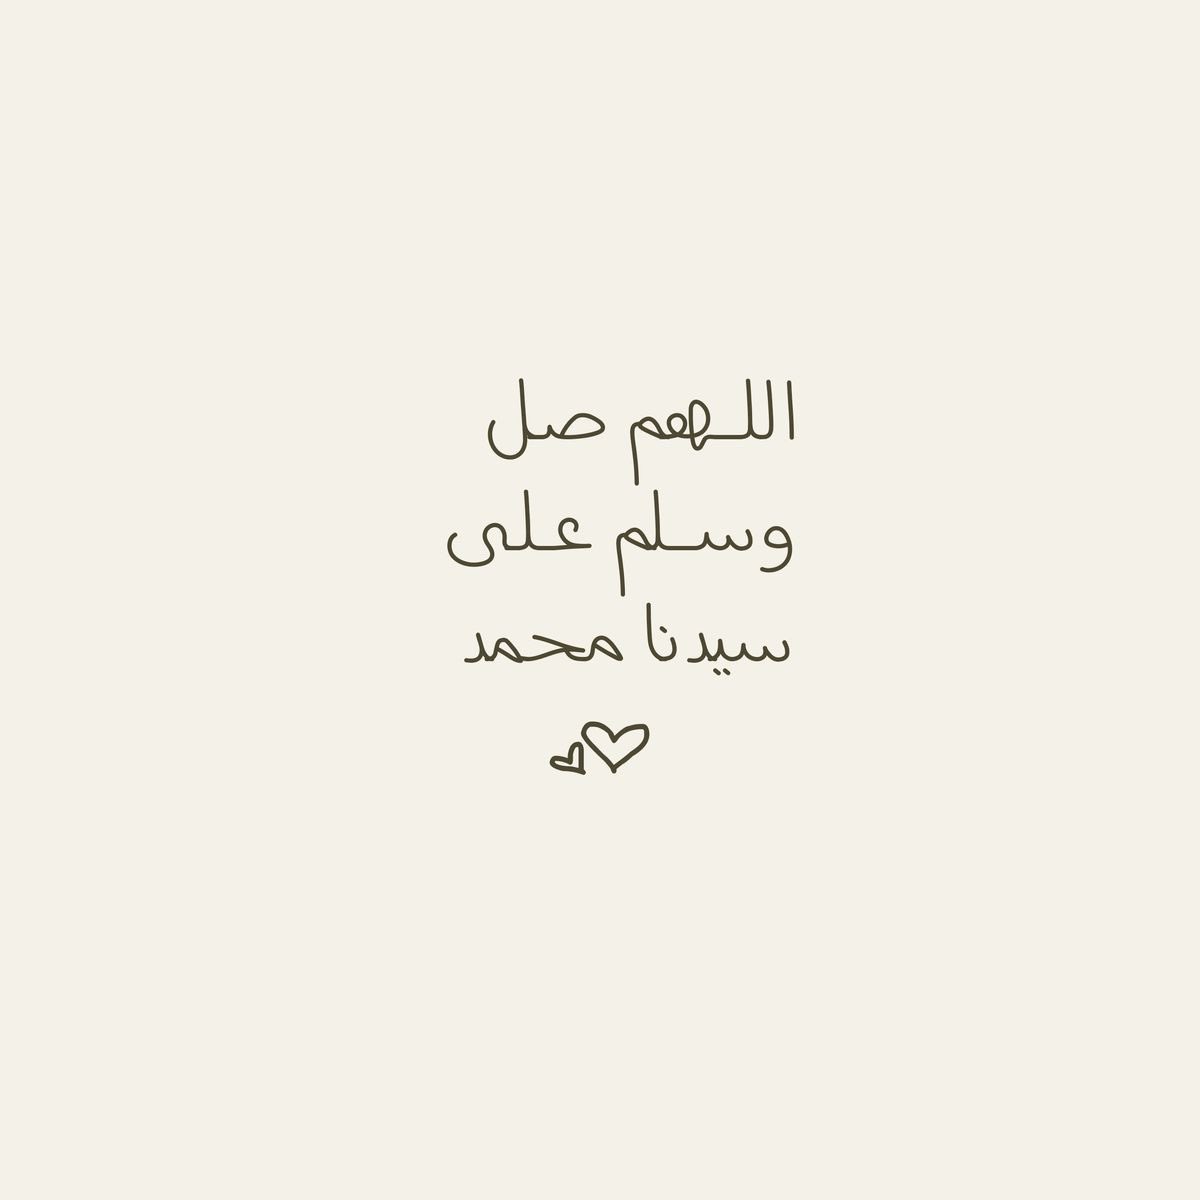 اللهم صل
وسلم على
سيدنا محمد